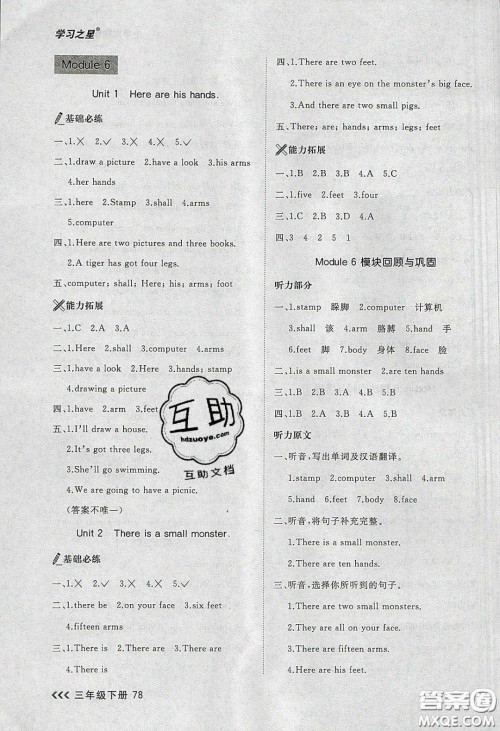 学习之星®
Module 6
Unit 1 Here are his hands.
基础必练
一、1.✕ 2.✕ 3.✕ 4.✕ 5.✓
二、1.draw a picture 2.have a look 3.his arms
4.her hands
三、1.here 2.Stamp 3.shall 4.arms
5.computer
四、1.Here are two pictures and three books.
2.A tiger has got four legs.
五、computer; shall; Here; legs; have
能力拓展
一、1.C 2.A 3.A
二、1.Here 2.shall 3.computer 4.arms 5.legs
三、1.have a look 2.Here are 3.hands; stamp
4.drawing a picture
四、1.have 2.arm 3.feet
五、1.I'll draw a house.
2.It's got three legs.
3.She'll go swimming.
4.We are going to have a picnic.
(答案不唯一)
Unit 2 There is a small monster.
基础必练
一、1.✕ 2.✓ 3.✕ 4.✓ 5.✓
二、1.there be 2.on your face 3.six feet
4.fifteen arms
三、1.There is 2.There are 3.There are
4.There is
<<< 三年级下册 78
四、1.There are two feet.
2.There is an eye on the monster's big face.
3.And there are two small pigs.
五、There; are; hands; arms; legs; feet
能力拓展
一、1.B 2.B 3.B 4.A 5.C
二、1.five 2.feet 3.four
三、1.A 2.A 3.B 4.A 5.B
四、3 4 2 5 1
Module 6 模块回顾与巩固
听力部分
一、1.stamp 跺脚 2.computer 计算机
3.shall 该 4.arm 胳膊 5.hand 手
6.feet 脚 7.body 身体 8.face 脸
二、1.is a small monster 2.are ten hands
三、1.A 2.B 3.A 4.B 5.B
听力原文
一、听音,写出单词及汉语翻译。
1.stamp 2.computer 3.shall 4.arm
5.hand 6.feet 7.body 8.face
二、听音,将句子补充完整。
1.There is a small monster.
2.There are ten hands.
三、听音,选择你所听到的句子。
1.There are two small monsters.
2.There are ten hands.
3.There are fifteen arms.
互助
hdzuoye.com
互助文档
答案圈
MXQE.COM